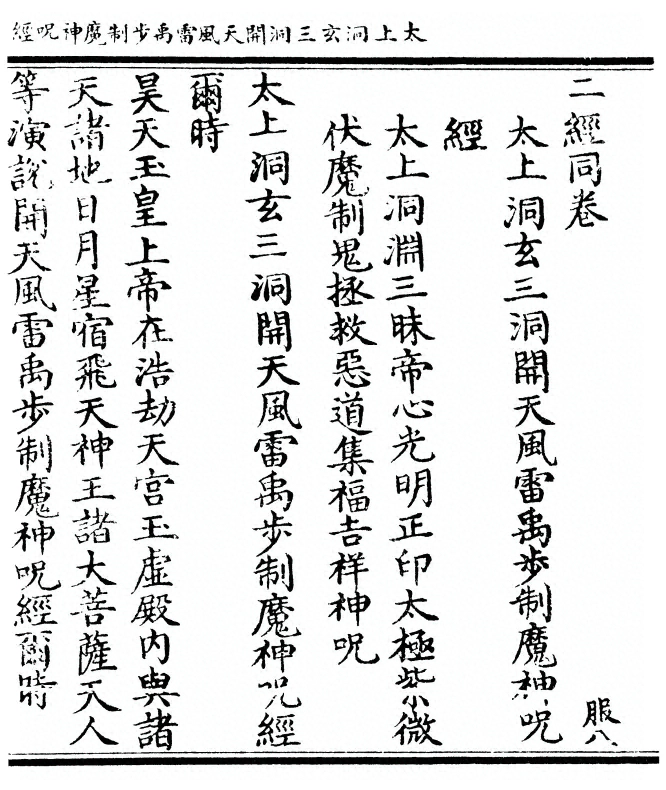 太上洞玄三洞開天風雷禹步制魔神呪經
二經同卷
服八
太上洞玄三洞開天風雷禹步制魔神呪
經
太上洞淵三昧帝心光明正印太極紫微
伏魔制鬼拯救惡道集福吉祥神呪
太上洞玄三洞開天風雷禹步制魔神呪經
爾時
昊天玉皇上帝在浩劫天宮玉虛殿內與諸
天諸地日月星宿飛天神王諸大菩薩天人
等演說開天風雷禹步制魔神呪經爾時